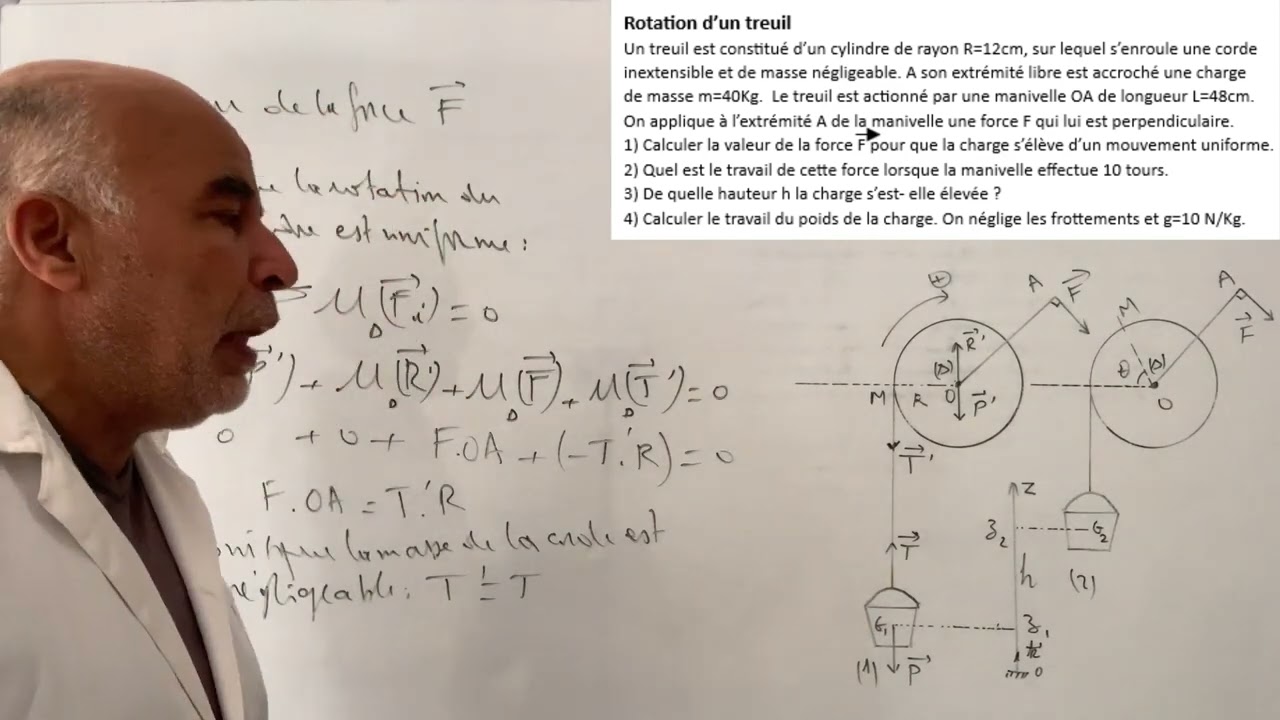 Rotation d'un treuil
Un treuil est constitué d'un cylindre de rayon R=12cm, sur lequel s'enroule une corde
inextensible et de masse négligeable. A son extrémité libre est accroché une charge
de masse m=40Kg. Le treuil est actionné par une manivelle OA de longueur L=48cm.
On applique à l'extrémité A de la manivelle une force F qui lui est perpendiculaire.
1) Calculer la valeur de la force F pour que la charge s'élève d'un mouvement uniforme.
2) Quel est le travail de cette force lorsque la manivelle effectue 10 tours.
3) De quelle hauteur h la charge s'est- elle élevée ?
4) Calculer le travail du poids de la charge. On néglige les frottements et g=10 N/Kg.
de la force F
la rotation du
est uniforme :
M(Fi) = 0
Δ
P') + M(R') + M(F) + M(T') = 0
Δ Δ Δ
0 + 0 + F.OA + (-T'.R) = 0
F.OA = T'.R
la masse de la corde est
négligeable : T' = T
+ A F
R'
(Δ)
M R O P'
T'
T
G1
(1) P
Z
z2
h
z1
k
0
A
M F
θ (Δ)
O
G2
(2)